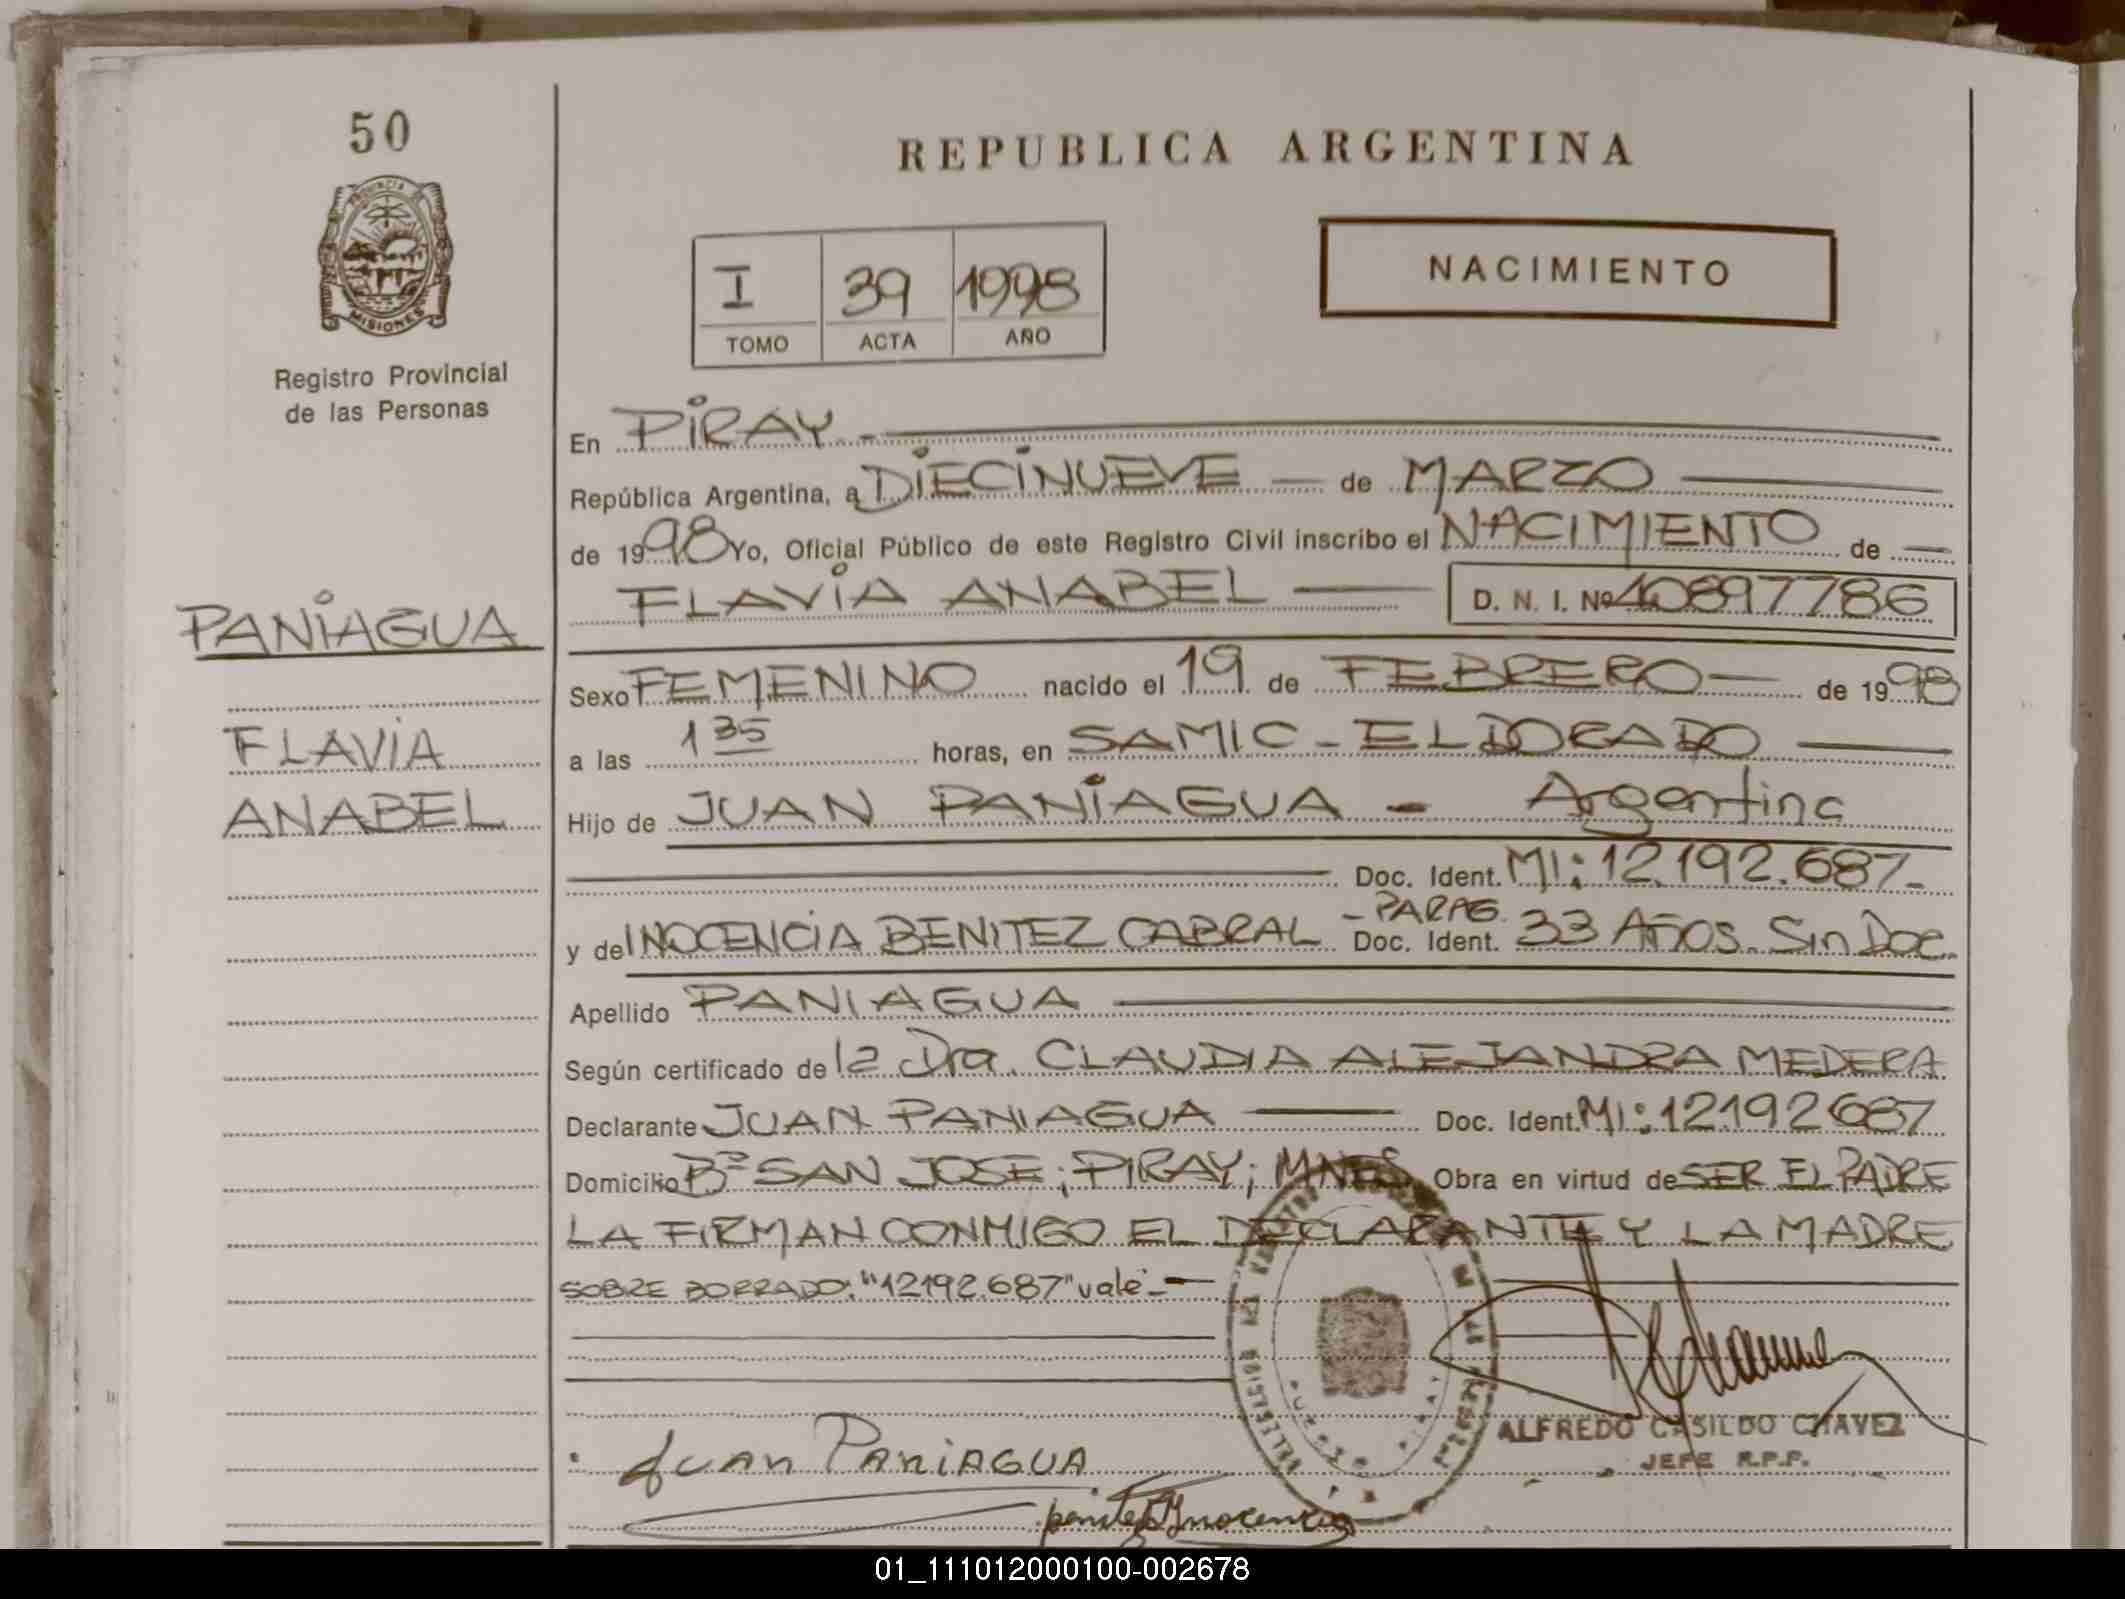 50
REPUBLICA ARGENTINA
PROVINCIA DE
MISIONES
I 39 1998
TOMO ACTA AÑO
NACIMIENTO
Registro Provincial
de las Personas
En PIRAY
República Argentina, a DIECINUEVE de MARZO
de 1998 Yo, Oficial Público de este Registro Civil inscribo el NACIMIENTO de
FLAVIA ANABEL D. N. I. Nº 40897786
PANIAGUA
FLAVIA
ANABEL
Sexo FEMENINO nacido el 19 de FEBRERO de 1998
a las 1 35 horas, en SAMIC - ELDORADO
Hijo de JUAN PANIAGUA - Argentino
Doc. Ident. MI: 12.192.687-
y de INOCENCIA BENITEZ CABRAL - PARAG. Doc. Ident. 33 AÑOS. Sin Doc.
Apellido PANIAGUA
Según certificado de la Dra. CLAUDIA ALEJANDRA MEDERA
Declarante JUAN PANIAGUA Doc. Ident. MI: 12192687
Domicilio Bº SAN JOSE; PIRAY; MNES. Obra en virtud de SER EL PADRE
LA FIRMAN CONMIGO EL DECLARANTE Y LA MADRE
SOBRE BORRADO: "12192.687" vale.-
Juan PANIAGUA
benitez Inocencia
PUERTO PIRAY
ALFREDO CASILDO CHAVEZ
JEFE R.P.P.
01_111012000100-002678